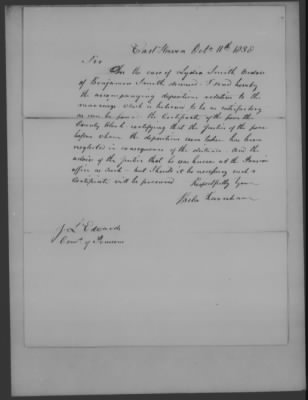 East Haven Oct. 11th 1838
Sir
In the case of Lydia Smith Widow
of Benjamin Smith deceased I send hereby
the accompanying depositions relation to the
marriage which is believed to be as satisfactory
as can be had - the Certificate of the from the
County Clerk certifying that the Justice of the peace
before whom the depositions were taken has been
neglected in consequence of the distance - and the
advice of the Justice that he was known at the Pension
office as such - but should it be needful such a
Certificate will be procured
Respectfully Yours
J L Edwards
Comr. of Pensions